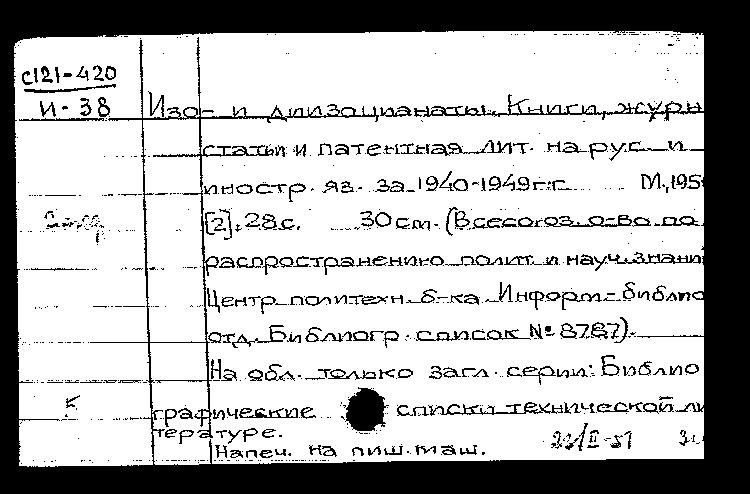 С121-420
И-38 Изо- и диизоцианаты. Книги, журн
статьи и патентная лит. на рус. и
иностр. яз. за 1940-1949 г.г. М., 195
[2], 28 с. 30 см. (Всесоюз. о-во по
распространению полит. и науч. знани
Центр. политехн. б-ка. Информ.-библио
отд. Библиогр. список № 8787).
На обл. только загл. серии: Библио
графические списки технической ли
тературе.
Напеч. на пиш. маш.